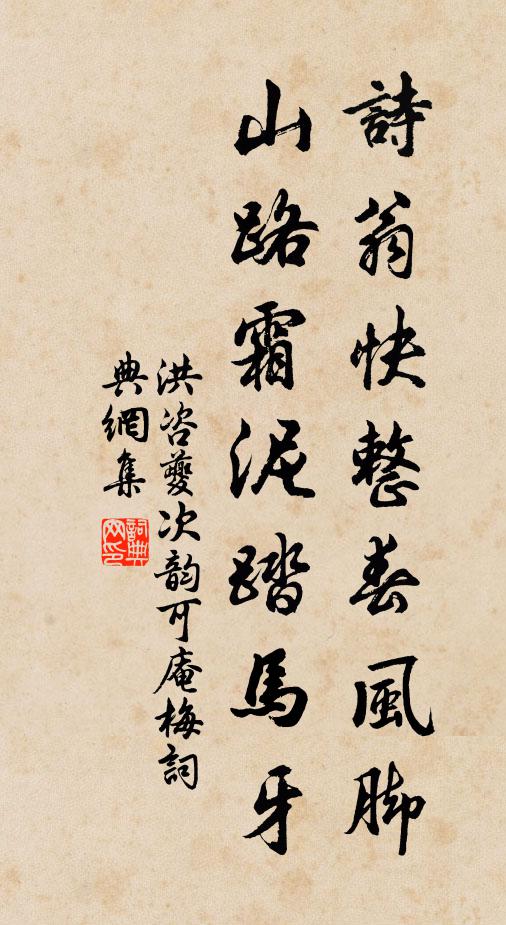 詩翁快整春風脚
山路霜泥踏馬牙
洪咨夔次韵可庵梅詞
典網集
詞典網印